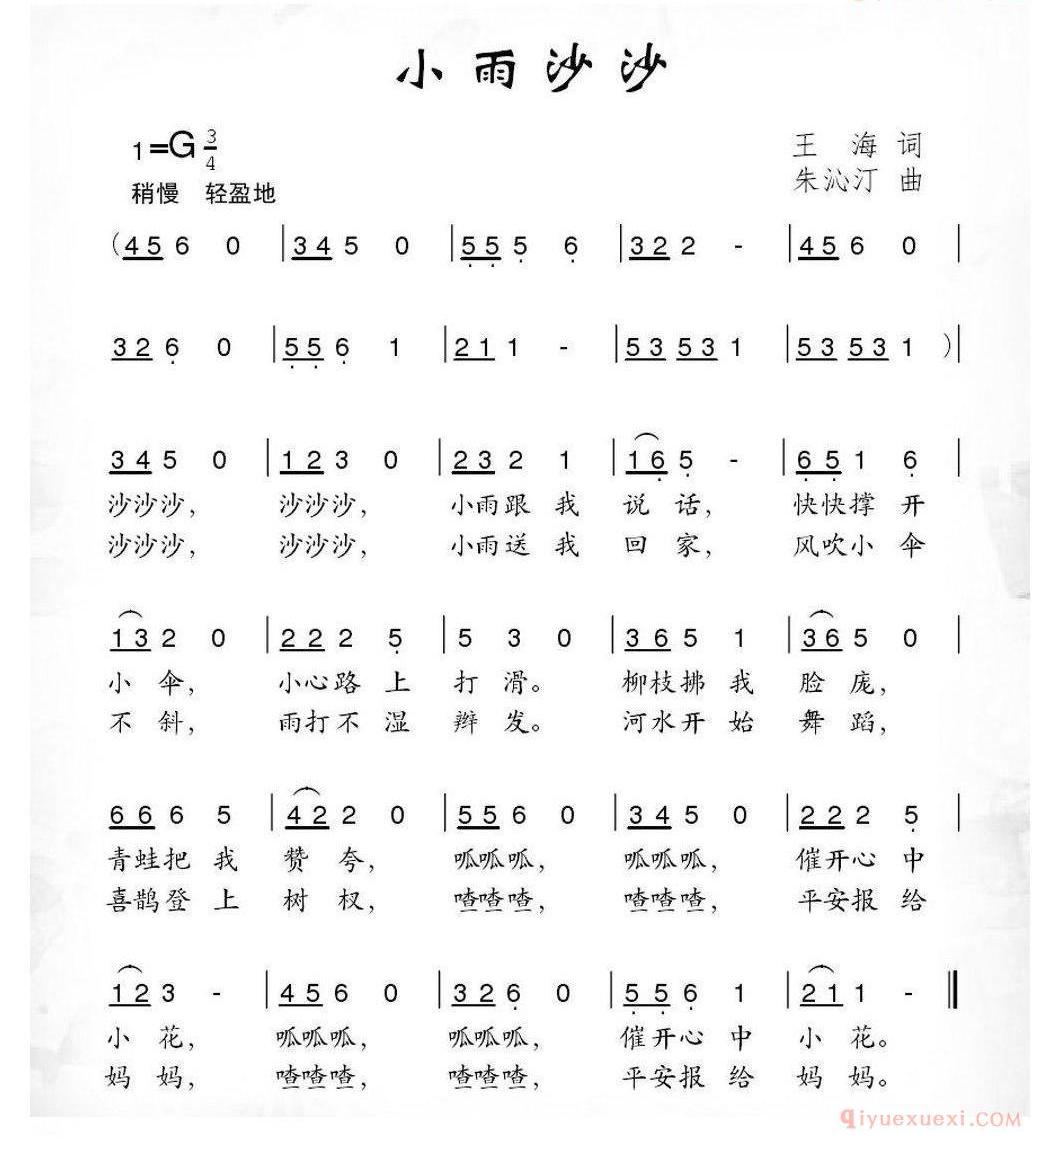 小雨沙沙
1=G 3/4
王 海 词
稍慢 轻盈地
朱沁汀 曲
(4 5 6 0 | 3 4 5 0 | 5 5 5 6 | 3 2 2 - | 4 5 6 0 |
3 2 6 0 | 5 5 6 1 | 2 1 1 - | 5 3 5 3 1 | 5 3 5 3 1 )|
3 4 5 0 | 1 2 3 0 | 2 3 2 1 | 1 6 5 - | 6 5 1 6 |
沙沙沙, 沙沙沙, 小雨跟 我 说 话, 快快撑 开
沙沙沙, 沙沙沙, 小雨送 我 回 家, 风吹小 伞
1 3 2 0 | 2 2 2 5 | 5 3 0 | 3 6 5 1 | 3 6 5 0 |
小 伞, 小心路 上 打 滑。 柳枝拂 我 脸 庞,
不 斜, 雨打不 湿 辫 发。 河水开 始 舞 蹈,
6 6 6 5 | 4 2 2 0 | 5 5 6 0 | 3 4 5 0 | 2 2 2 5 |
青蛙把 我 赞 夸, 呱呱呱, 呱呱呱, 催开心 中
喜鹊登 上 树 杈, 喳喳喳, 喳喳喳, 平安报 给
1 2 3 - | 4 5 6 0 | 3 2 6 0 | 5 5 6 1 | 2 1 1 - ‖
小 花, 呱呱呱, 呱呱呱, 催开心 中 小 花。
妈 妈, 喳喳喳, 喳喳喳, 平安报 给 妈 妈。
qiyuexuexi.com